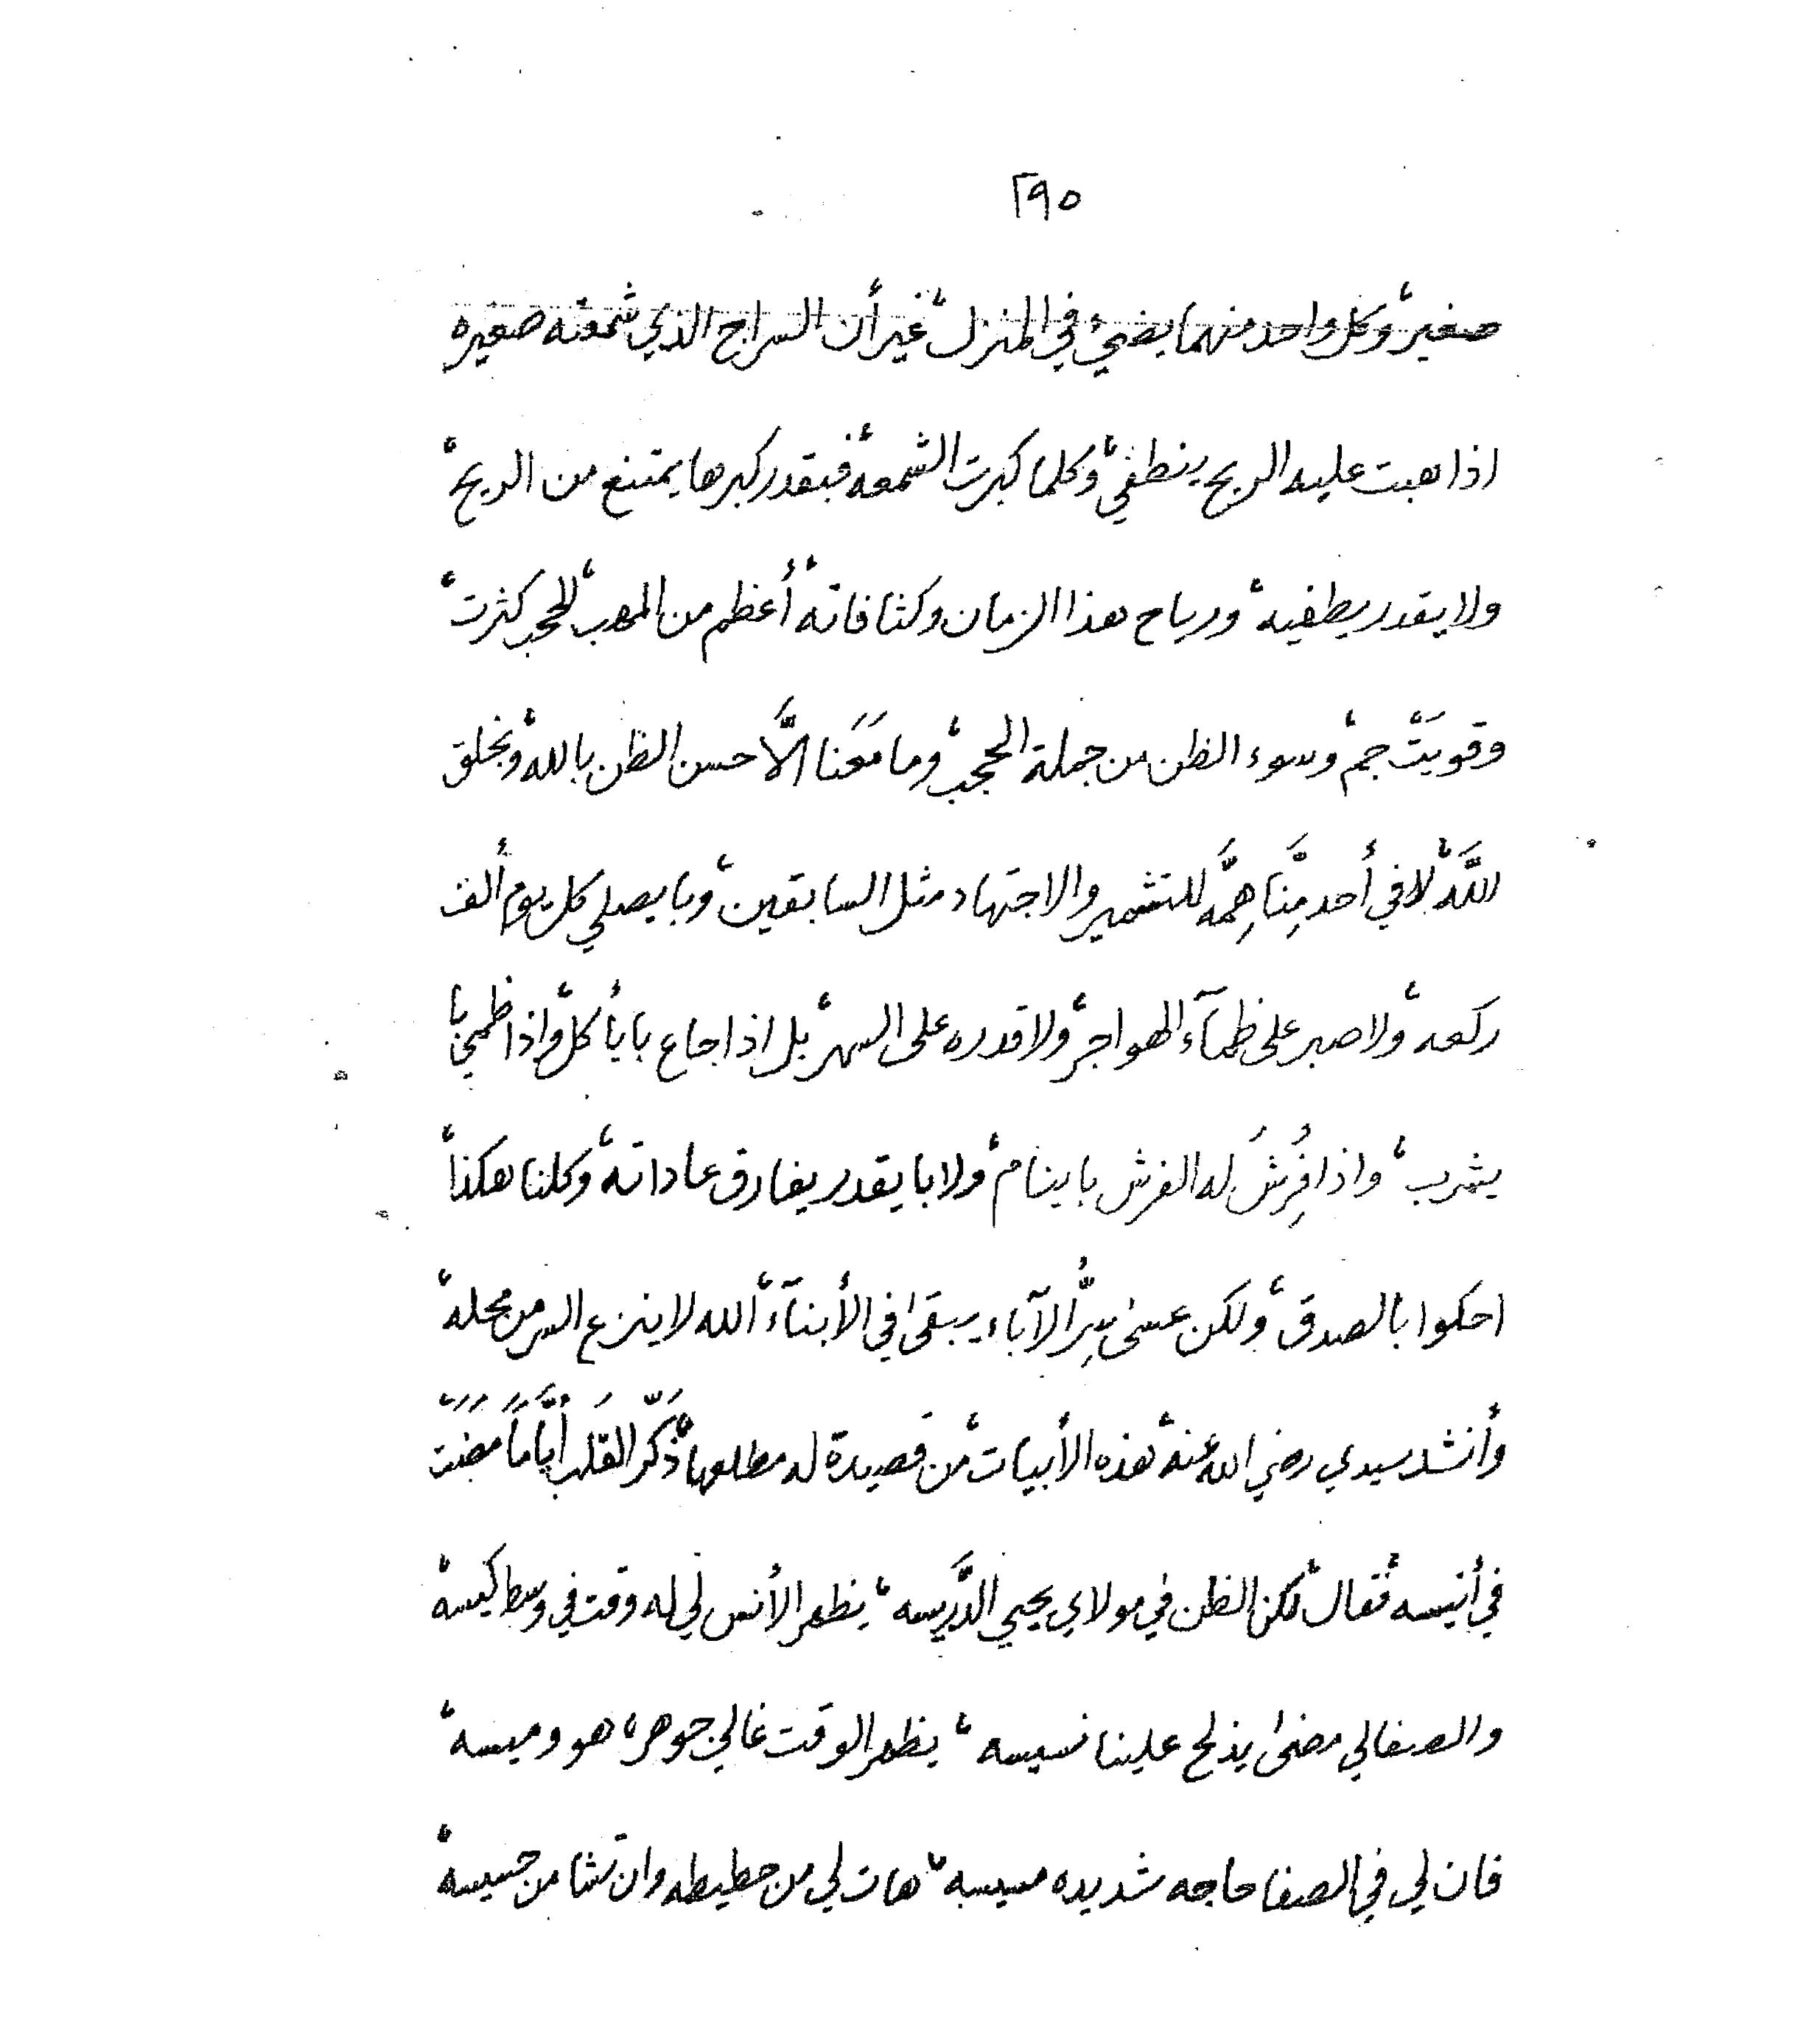 ٢٩٥
صغير، وكل واحد منهما يضيء في المنزل، غير أن السراج الذي شمعته صغيره
اذا هبت عليه الريح ينطفي، وكلما كبرت الشمعه، فبقدر كبرها يمتنع من الريح،
ولا يقدر يطفيه، ورياح هذا الزمان وكثافاته، أعظم من المهب، الحجب كثرت،
وقويَتْ جم، وسوء الظن من جملة الحجب، وما مَعَنا الَّا حسن الظن بالله، وبخلق
اللَّه، لا في أحد مِنَّا هِمَّه للتشمير والاجتهاد مثل السابقين، وبا يصلي كل يوم ألف
ركعه، ولا صبر على ظمآء الهواجر، ولا قدره على السهر، بل اذا جاع با يأكل، واذا ظمي با
يشرب، واذا فُرِشَ له الفرش با ينام، ولا با يقدر يفارق عاداته، وكلنا هكذا،
احكوا بالصدق، ولكن عسى سِرُّ الآباء يبقى في الأبنآء، الله لا ينزع السر من محله،
وأنشد سيدي رضي الله عنه، هذه الأبيات، من قصيدة له مطلعها، ذَكَّر القلَب أيَّاماً مضَتْ
في أنيسه، فقال، لكن الظن في مولاي يحيي الدَّرِيسه، يظهر الأنس لي له وقت في وسط كيسه،
والصفا لي مضى يذلح علينا نسيسه، يظهر الوقت غالي جوهره هو وميسه،
فان لي في الصفا حاجه شديده مسيسه، هات لي من حطيطه وان تشا من حبيسه،